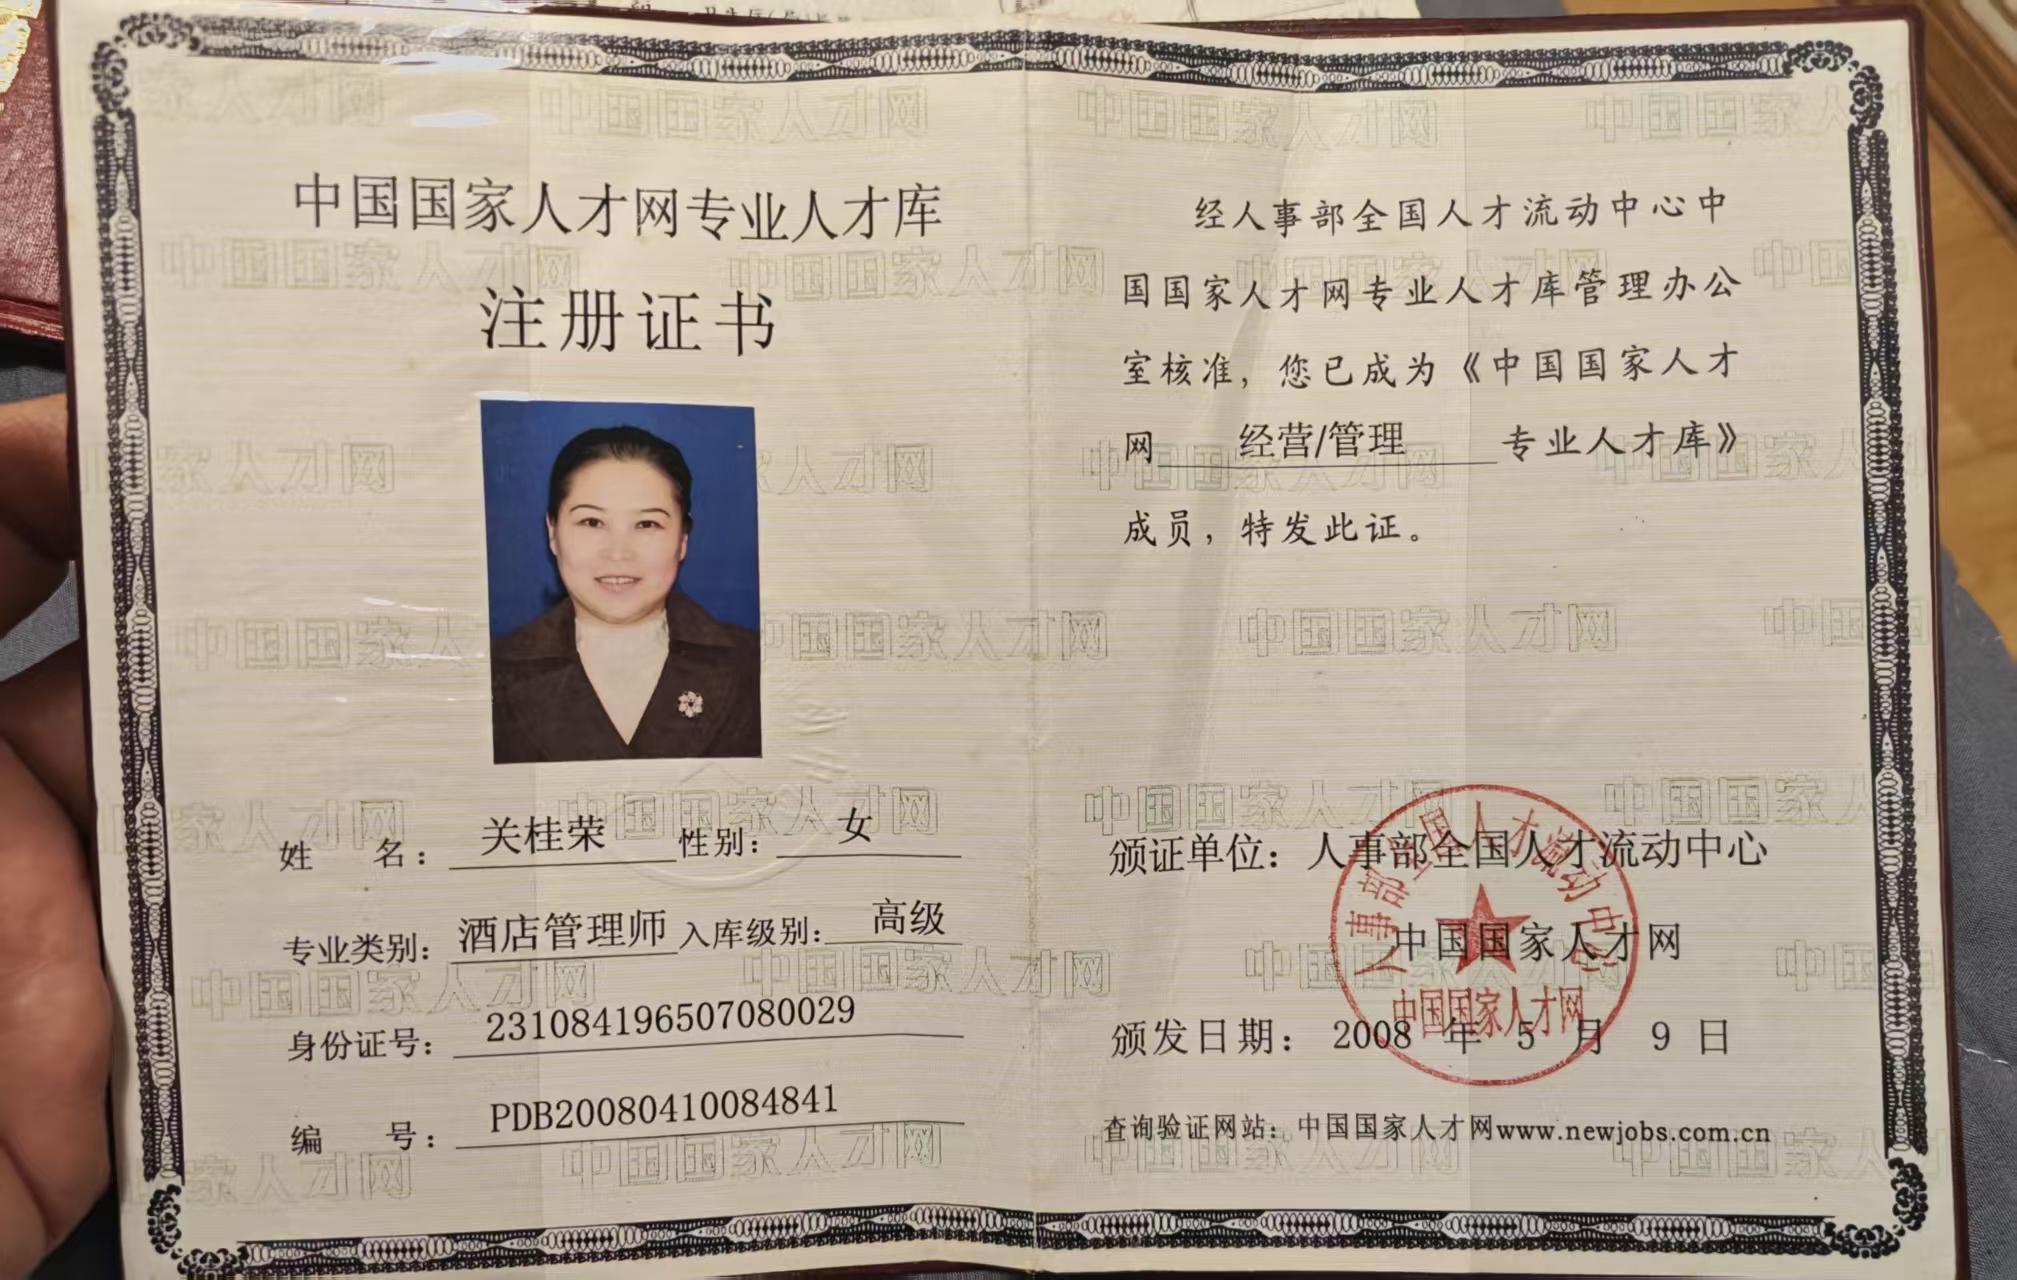 中国国家人才网专业人才库
注册证书
姓 名：关桂荣 性别：女
专业类别：酒店管理师 入库级别：高级
身份证号：231084196507080029
编 号：PDB20080410084841
经人事部全国人才流动中心中
国国家人才网专业人才库管理办公
室核准，您已成为《中国国家人才
网 经营/管理 专业人才库》
成员，特发此证。
颁证单位：人事部全国人才流动中心
中国国家人才网
颁发日期：2008 年 5 月 9 日
查询验证网站：中国国家人才网www.newjobs.com.cn
人事部全国人才流动中心
中国国家人才网